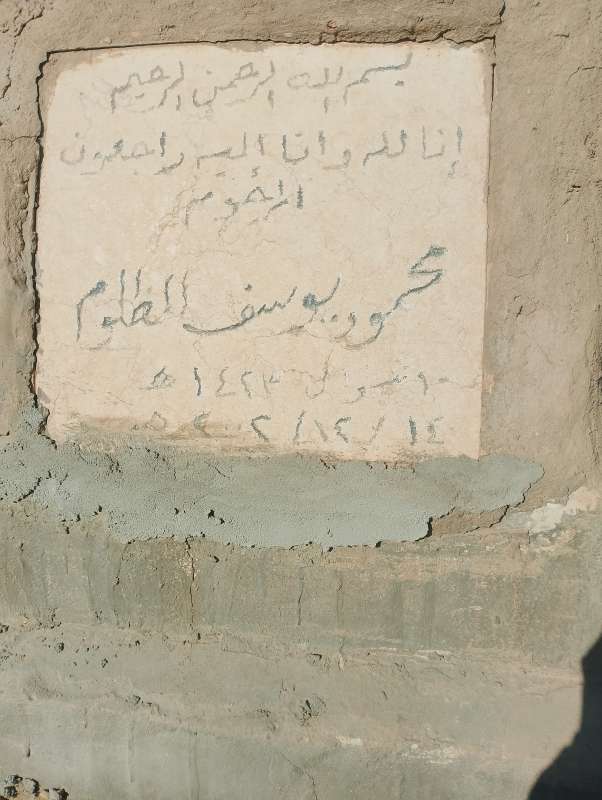 بسم الله الرحمن الرحيم
إنا لله وانا إليه راجعون
المرحوم
محمود يوسف المظلوم
١٠ شوال ١٤٢٣ هـ
١٤ / ١٢ / ٢٠٠٢